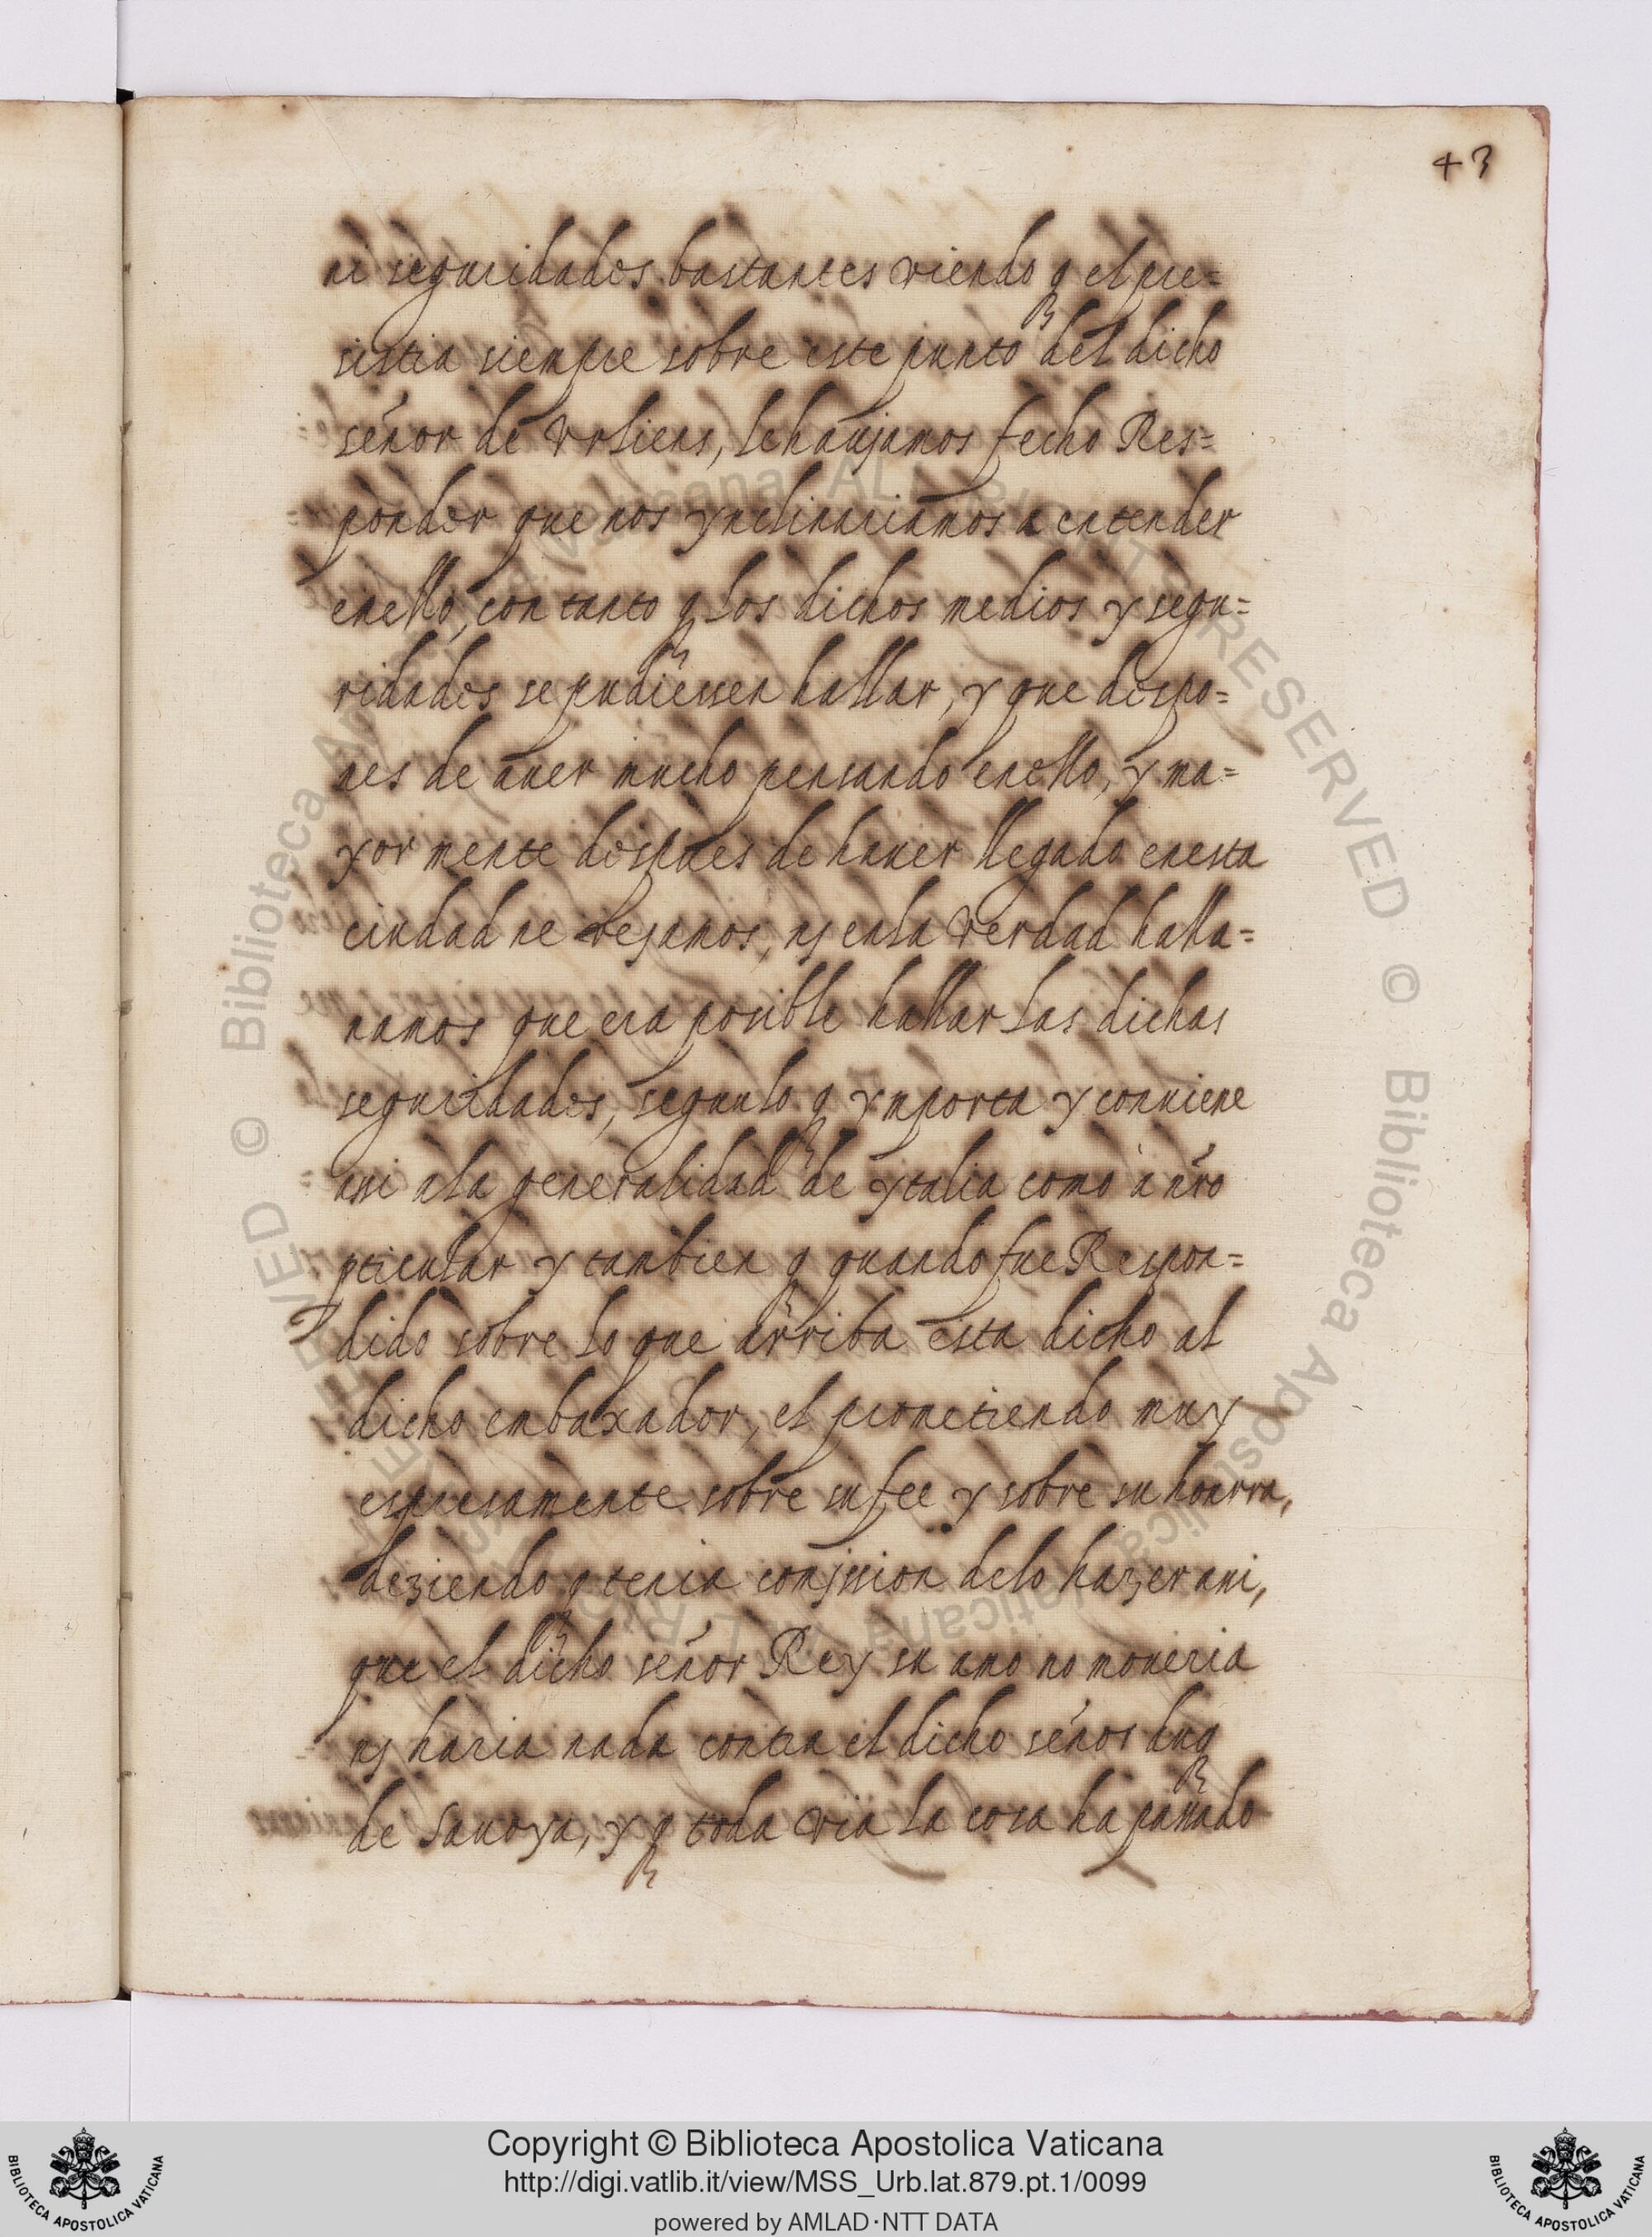 43
ni seguridades bastantes viendo q el pre=
sistia siempre sobre este punto del dicho
señor de Vrliens, le haujamos fecho Res=
ponder que nos ynclinariamos a entender
enello, con tanto q los dichos medios y segu=
ridades se pudiessen hallar, y que despo=
nes de auer mucho pensando enello, y ma=
yor mente despues de hauer llegado enesta
ciudad ne vejamos, nj enla verdad halla=
namos que era posible hallar las dichas
seguridades, segunlo q ymporta y conuiene
assi ala generalidad de ytalia como a nr̃o
pticular y tambien q quando fue Respon=
dido sobre lo que arriba esta dicho al
dicho embaxador, el prometiendo muy
espresamente sobre su fee y sobre su honrra,
deziendo q tenia comjssion delo hazer assi,
que el dicho señor Rey su amo no moueria
nj haria nada contra el dicho señor duq
de Sauoya, y q toda via la cosa ha passado
Copyright © Biblioteca Apostolica Vaticana
http://digi.vatlib.it/view/MSS_Urb.lat.879.pt.1/0099
powered by AMLAD·NTT DATA
BIBLIOTECA APOSTOLICA VATICANA
BIBLIOTECA APOSTOLICA VATICANA